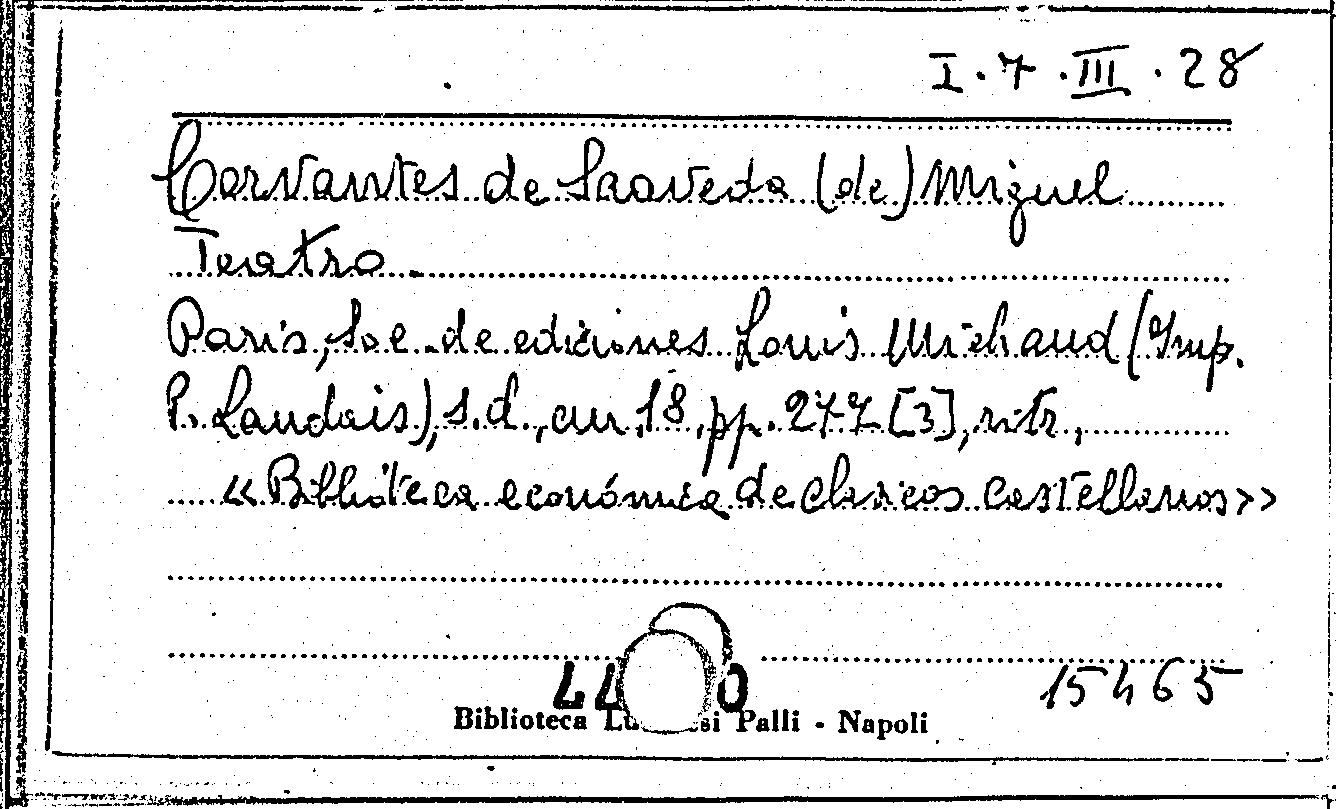 I.7.III.28
Cervantes de Saaveda (de) Miguel
Teatro.
Paris, Soc. de ediciones Louis Michaud (Imp.
P. Landais), s.d., in 18, pp. 277 [3], ritr.,
«Biblioteca económica de clasicos castellanos»
15465
Biblioteca Palli - Napoli